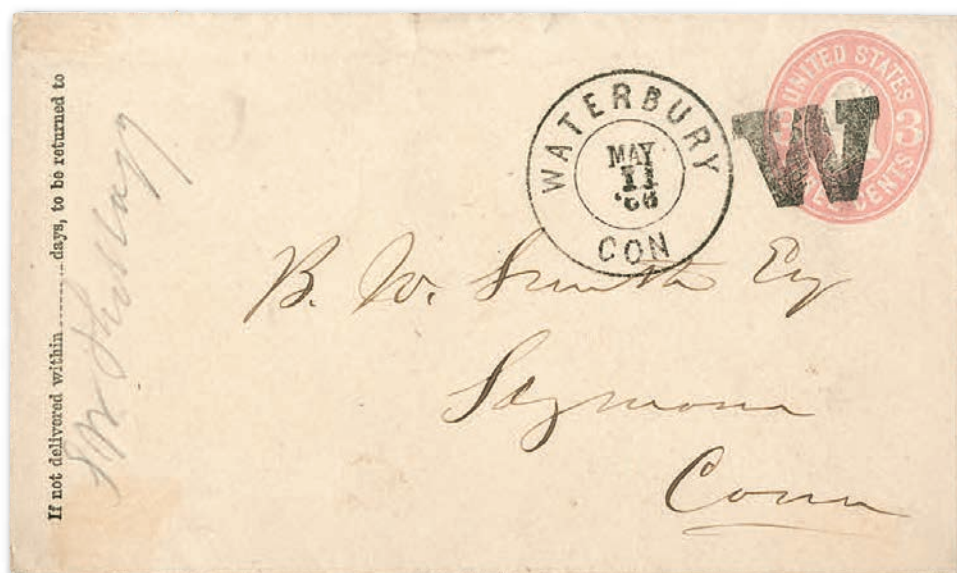 If not delivered within ........ days, to be returned to
WATERBURY
MAY
11
'66
CON
W
UNITED STATES
3
CENTS
B. W. Smith Esq
Seymour
Conn